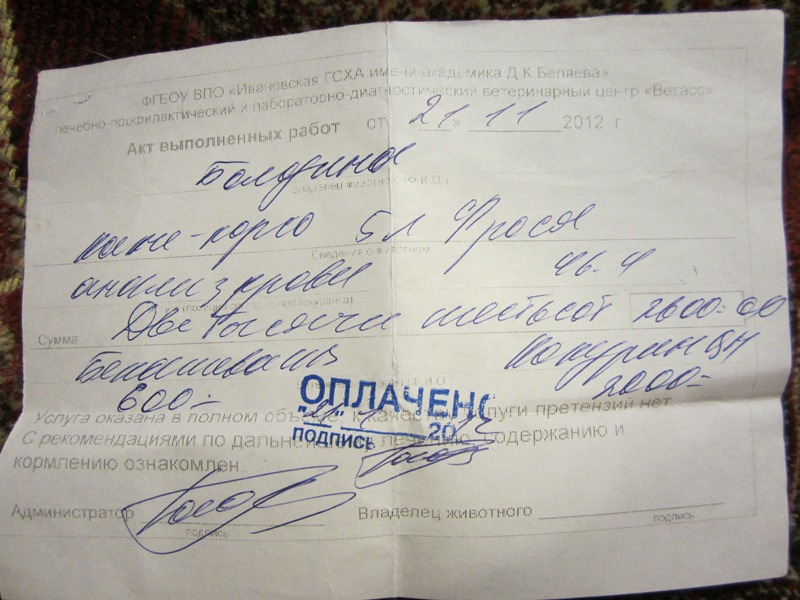 ФГБОУ ВПО «Ивановская ГСХА имени академика Д.К.Беляева»
лечебно-профилактический и лабораторно-диагностический ветеринарный центр «Ветасс»
Акт выполненных работ от 21 11 2012 г
Болдина
Владелец животного (Ф.И.О.)
кане-корсо 5 л Фрося
Сведения о животном
анализ крови 46-4
прейскуранта)
Сумма Две тысячи шестьсот 2600-00
600- 2000-
ОПЛАЧЕНО
Услуга оказана в полном объеме, к качеству услуги претензий нет.
С рекомендациями по дальнейшему лечению, содержанию и
ПОДПИСЬ 20
кормлению ознакомлен
Администратор Владелец животного
подпись подпись